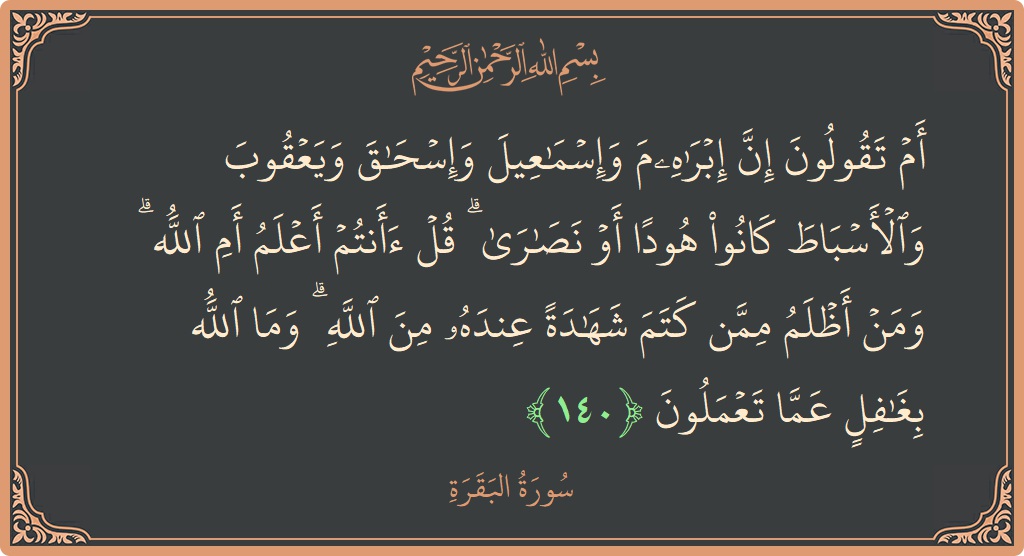 بِسْمِ اللهِ الرَّحْمٰنِ الرَّحِيْمِ
أَمۡ تَقُولُونَ إِنَّ إِبۡرَٰهِـۧمَ وَإِسۡمَٰعِيلَ وَإِسۡحَٰقَ وَيَعۡقُوبَ
وَٱلۡأَسۡبَاطَ كَانُواْ هُودًا أَوۡ نَصَٰرَىٰۗ قُلۡ ءَأَنتُمۡ أَعۡلَمُ أَمِ ٱللَّهُۗ
وَمَنۡ أَظۡلَمُ مِمَّن كَتَمَ شَهَٰدَةً عِندَهُۥ مِنَ ٱللَّهِۗ وَمَا ٱللَّهُ
بِغَٰفِلٍ عَمَّا تَعۡمَلُونَ ﴿١٤٠﴾
سُورَةُ البَقَرَةِ